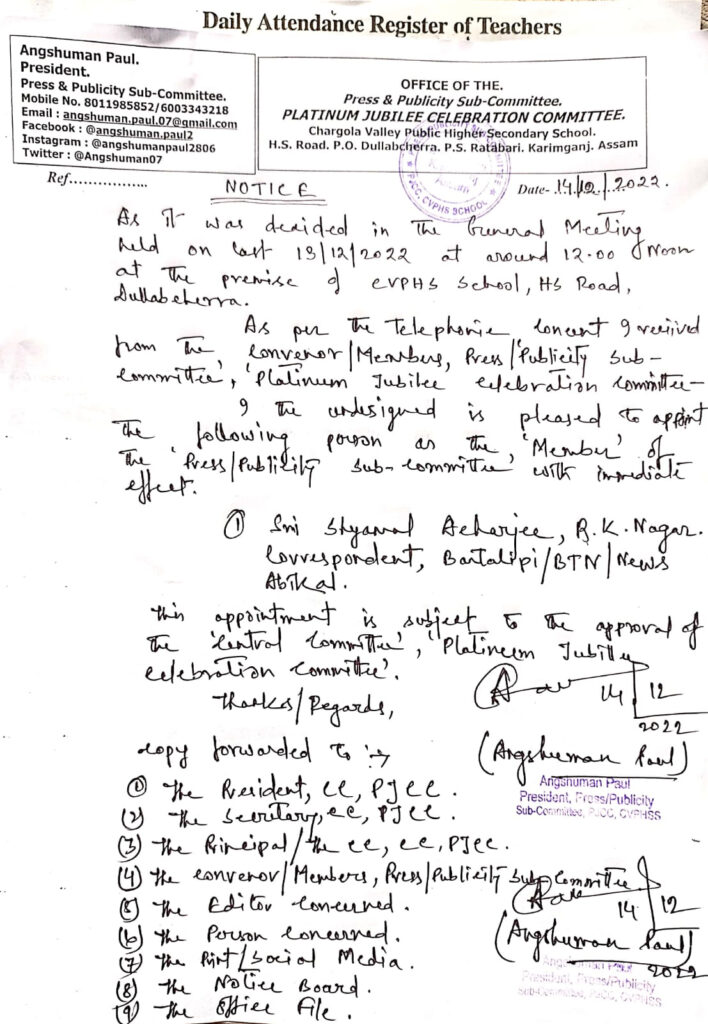 Daily Attendance Register of Teachers
Angshuman Paul.
President.
Press & Publicity Sub-Committee.
Mobile No. 8011985852/6003343218
Email : angshuman.paul.07@gmail.com
Facebook : @angshuman.paul2
Instagram : @angshumanpaul2806
Twitter : @Angshuman07
OFFICE OF THE.
Press & Publicity Sub-Committee.
PLATINUM JUBILEE CELEBRATION COMMITTEE.
Chargola Valley Public Higher Secondary School.
H.S. Road, P.O. Dullabcherra, P.S. Ratabari. Karimganj. Assam
PJCC, CVPHS SCHOOL
Ref................
NOTICE
Date- 14/12/2022.
As it was decided in the General Meeting
held on last 13/12/2022 at around 12.00 Noon
at the premise of CVPHS School, HS Road,
Dullabcherra.
As per the Telephonic Concent I received
from the, Convenor/Members, Press/Publicity Sub-
committee', 'Platinum Jubilee Celebration Committee-
I the undesigned is pleased to appoint
the following person as the, 'Member' of
the 'Press/Publicity Sub-Committee' with immediate
effect.
① Sri Shyamal Acharjee, R.K. Nagar.
Correspondent, Bartalipi/BTN/News
Abikal.
This appointment is subject to the approval of
the 'Central Committee', 'Platinum Jubilee
Celebration Committee'.
Thanks/Regards,
14 12
2022
(Angshuman Paul)
Angshuman Paul
President, Press/Publicity
Sub-Committee, PJCC, CVPHSS
Copy forwarded to :→
① The President, CC, PJCC.
(2) The Secretary, CC, PJCC.
(3) The Principal/The CC, CC, PJCC.
(4) The Convenor/Members, Press/Publicity Sub-Committee
(5) The Editor Concerned.
(6) The Person Concerned.
(7) The Print/Social Media.
(8) The Notice Board.
(9) The Office File.
14 12
2022
(Angshuman Paul)
Angshuman Paul
President, Press/Publicity
Sub-Committee, PJCC, CVPHSS